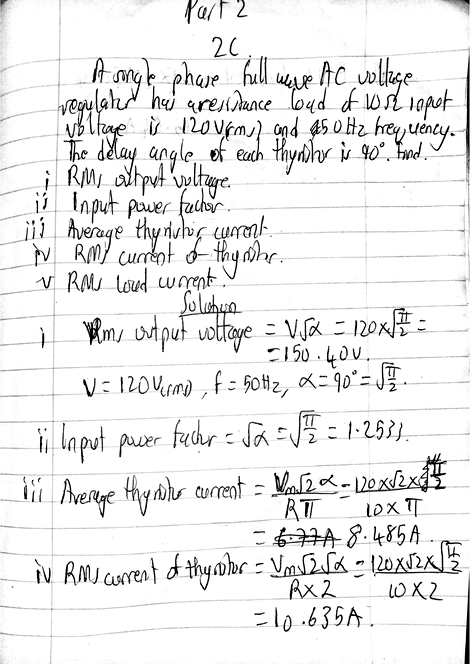 Part 2
2C.
A single phase full wave AC voltage
regulator has a resistance load of 10Ω input
voltage is 120V(rms) and 50Hz frequency.
The delay angle of each thyristor is 90°. Find.
i RMS output voltage.
ii Input power factor.
iii Average thyristor current.
iv RMS current of thyristor.
v RMS load current.
Solution
i Rms output voltage = V√α = 120x√π/2 =
= 150.40V.
V = 120V(rms), f = 50Hz, α = 90° = √π/2.
ii Input power factor = √α = √π/2 = 1.2533.
iii Average thyristor current = Vm√2α/Rπ = 120x√2xπ/2/10xπ
= 6.77A 8.485A.
iv RMS current of thyristor = Vm√2√α/Rx2 = 120x√2x√π/2/10x2
= 10.635A.